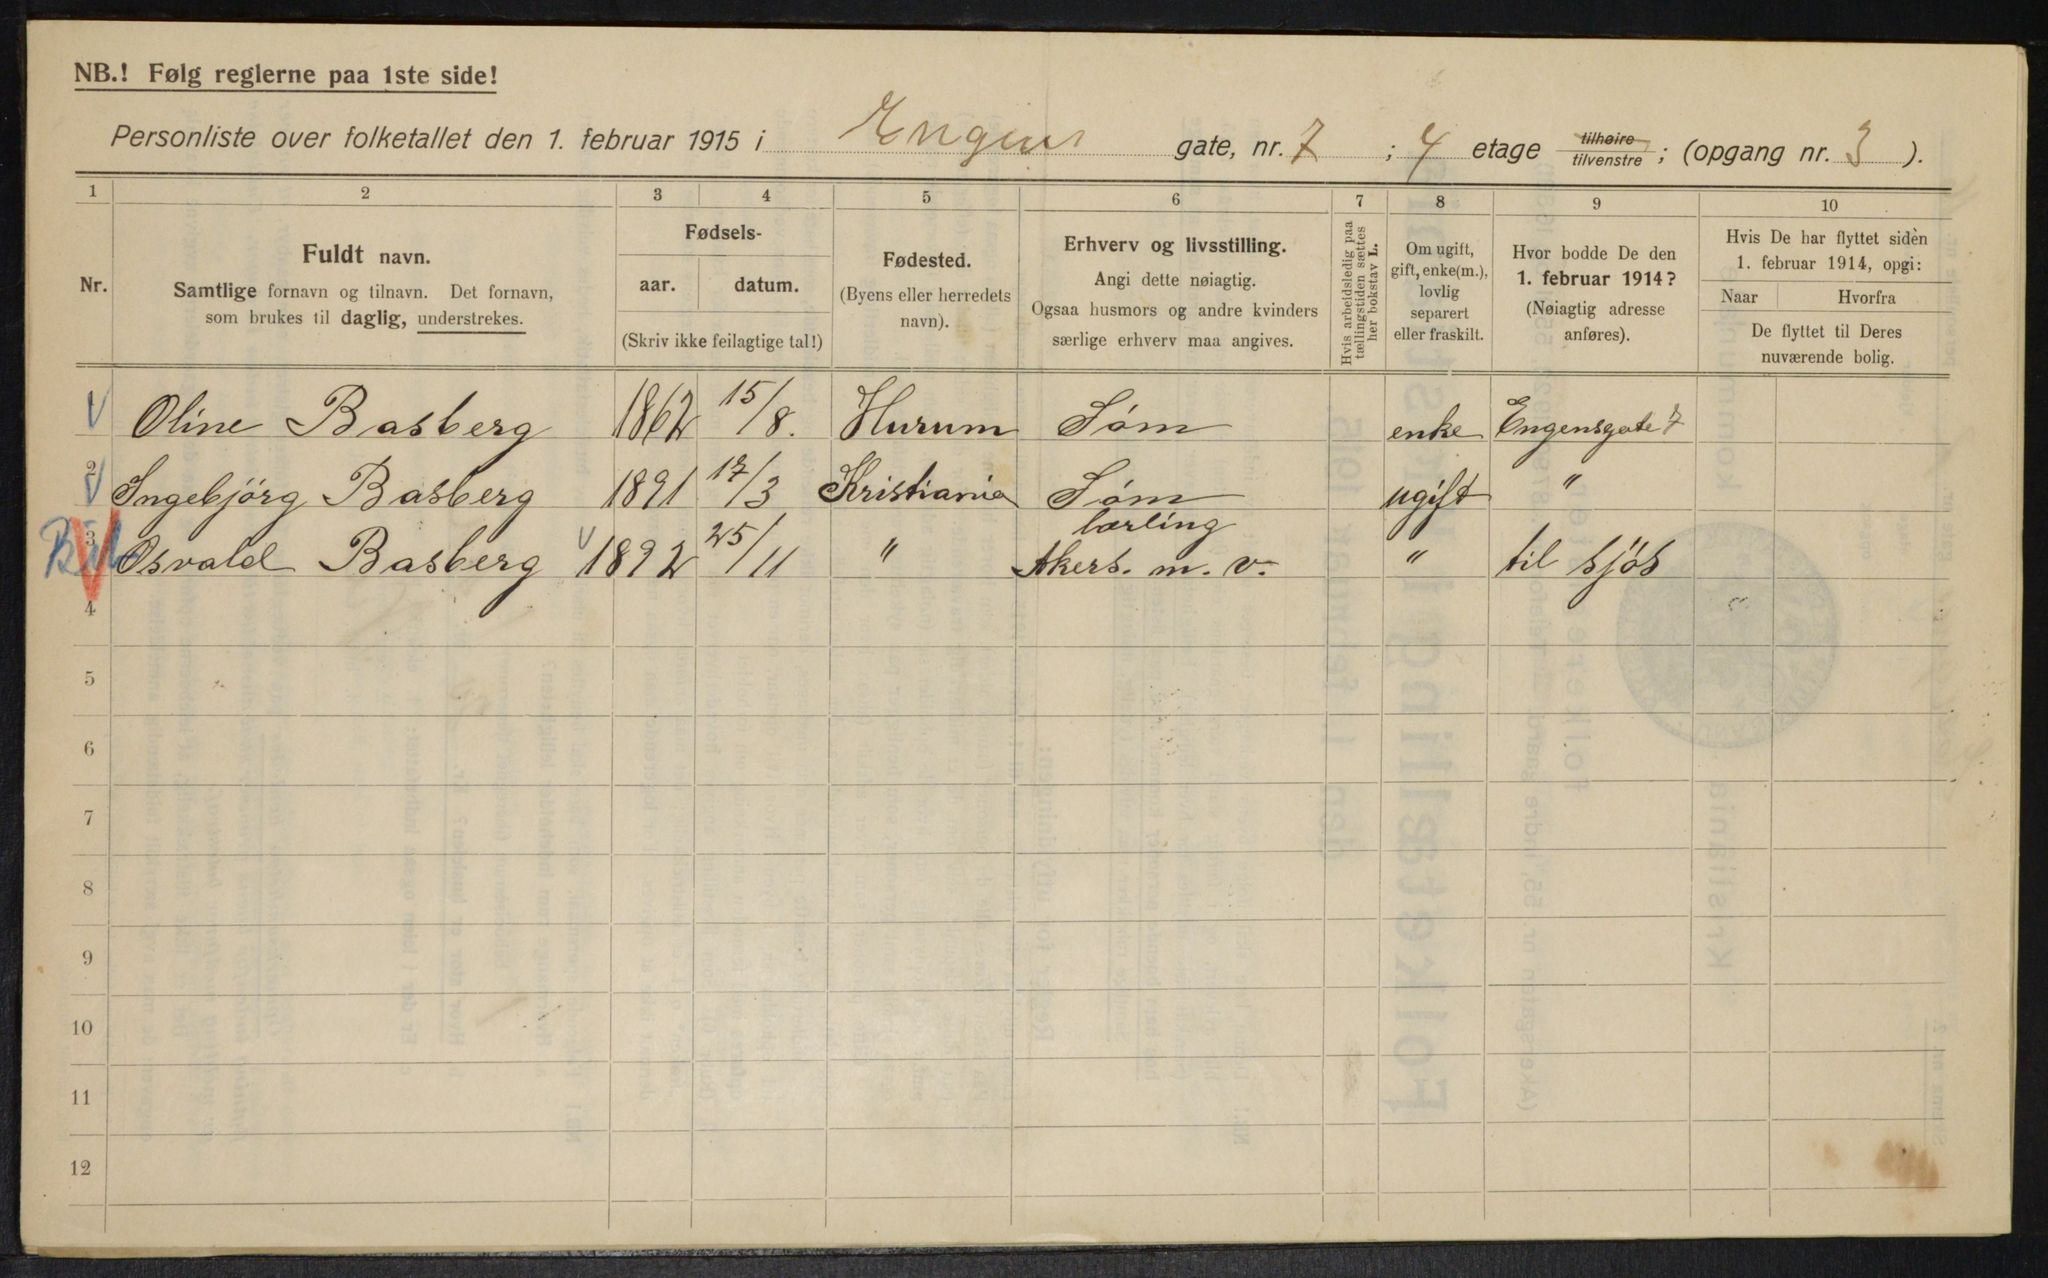 NB.! Følg reglerne paa 1ste side!
Personliste over folketallet den 1. februar 1915 i Engens gate, nr. 7 ; 4 etage tilhøire tilvenstre ; (opgang nr. 3 ).
1 2 3 4 5 6 7 8 9 10
Nr.
Fuldt navn.
Samtlige fornavn og tilnavn. Det fornavn,
som brukes til daglig, understrekes.
Fødsels-
aar. datum.
(Skriv ikke feilagtige tal!)
Fødested.
(Byens eller herredets
navn).
Erhverv og livsstilling.
Angi dette nøiagtig.
Ogsaa husmors og andre kvinders
særlige erhverv maa angives.
Hvis arbeidsledig paa
tællingstiden sættes
her bokstav L.
Om ugift,
gift, enke(m.),
lovlig
separert
eller fraskilt.
Hvor bodde De den
1. februar 1914?
(Nøiagtig adresse
anføres).
Hvis De har flyttet siden
1. februar 1914, opgi:
Naar Hvorfra
De flyttet til Deres
nuværende bolig.
Oline Basberg 1862 15/8. Hurum Söm enke Engensgate 7
2 Ingebjörg Basberg 1891 17/3 Kristiania Söm ugift "
lærling
3 Osvald Basberg 1892 25/11 " Akers. m. v. " til sjös
4
5
6
7
8
9
10
11
12